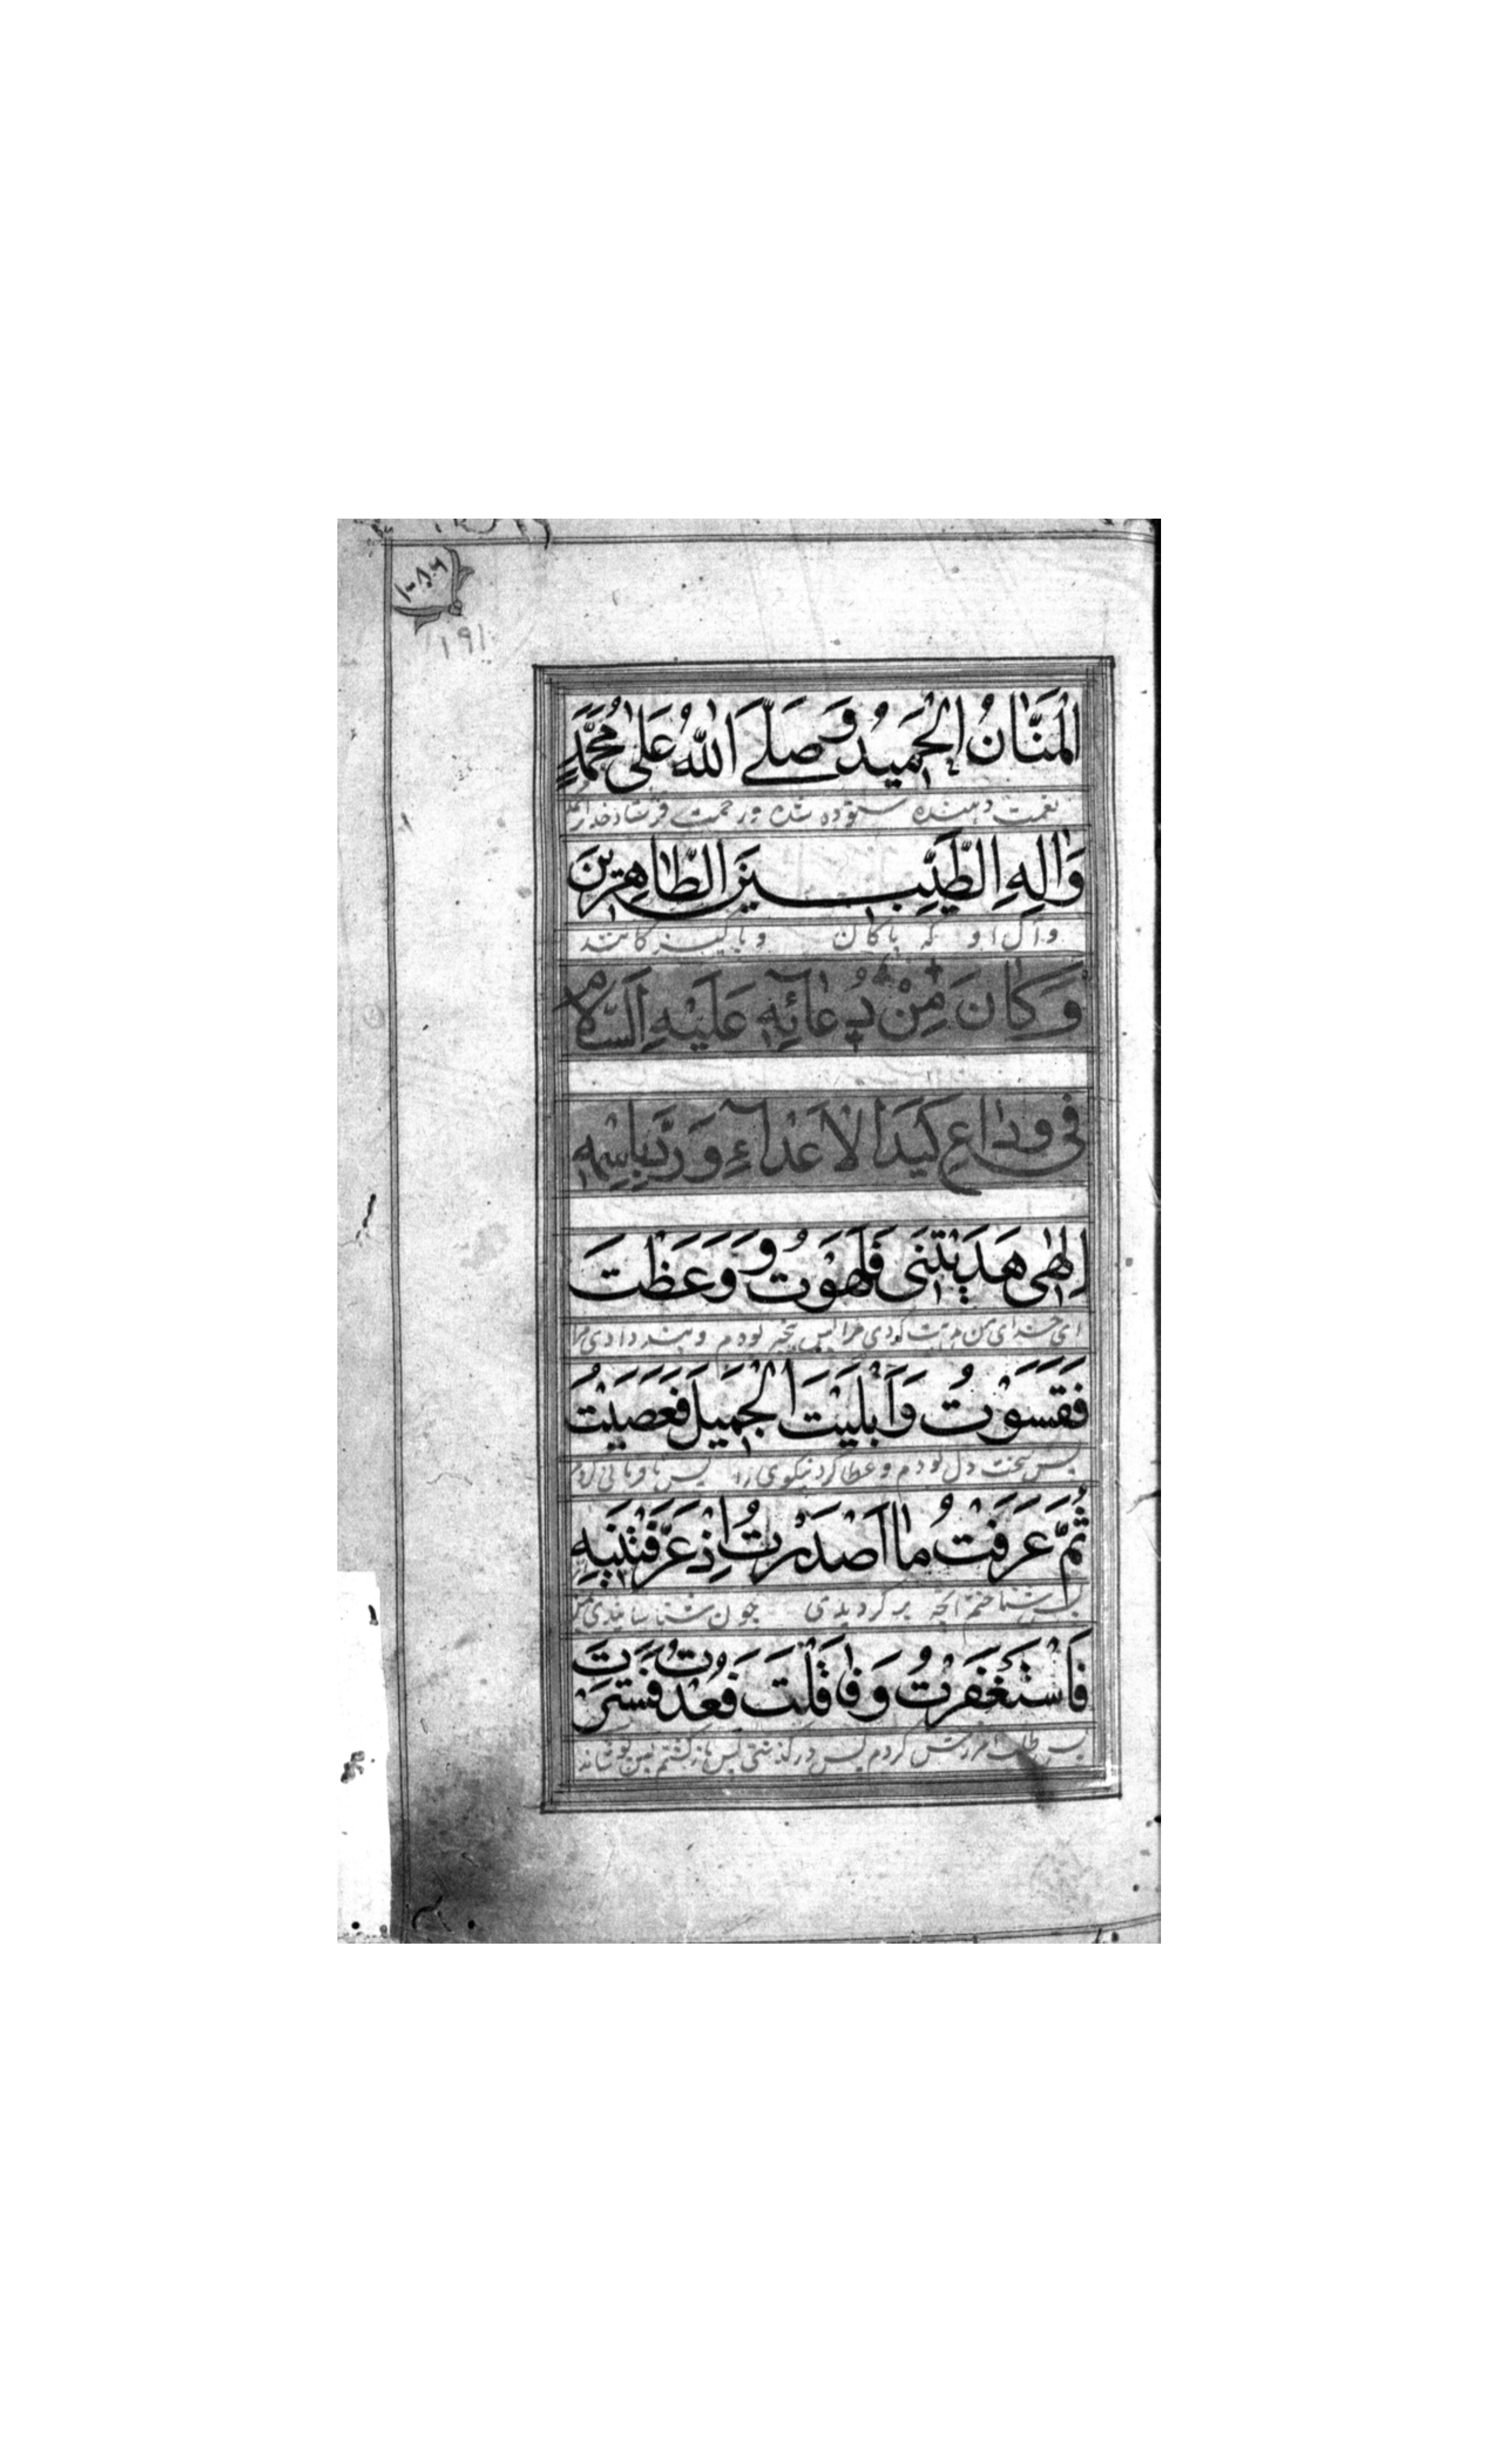 ١٩١
الْمَنَّانُ الْحَمِيدُ وَصَلَّى اللّٰهُ عَلىٰ مُحَمَّدٍ
نعمت دهنده ستوده شده و رحمت فرستاد خدا
وَاٰلِهِ الطَّيِّبِينَ الطَّاهِرِينَ
و آل او که پاکان و پاکیزکانند
وَكَانَ مِنْ دُعَائِهِ عَلَيْهِ السَّلَامُ
فِي وِدَاعِ كَيْدِ الْاَعْدَاءِ وَرَدِّ بَاسِهِمْ
اِلٰهِي هَدَيْتَنِي فَلَهَوْتُ وَوَعَظْتَ
ای خدای من هدایت کردی مرا پس بیخبر بودم و پند دادی مرا
فَقَسَوْتُ وَاَبْلَيْتَ الْجَمِيلَ فَعَصَيْتُ
پس سخت دل بودم و عطا کرد نیکوی را پس نافرمانی کردم
ثُمَّ عَرَفْتُ مٰا اَصْدَرْتُ اِذْ عَرَّفْتَنِيهِ
پس شناختم آنچه بر کردیدی چون شناسانیدی
فَاسْتَغْفَرْتُ وَفَاَقَلْتَ فَعُدْتُ فَسَتَرْتَ
پس طلب امرزش کردم پس در کذشتی پس باز کشتم پس